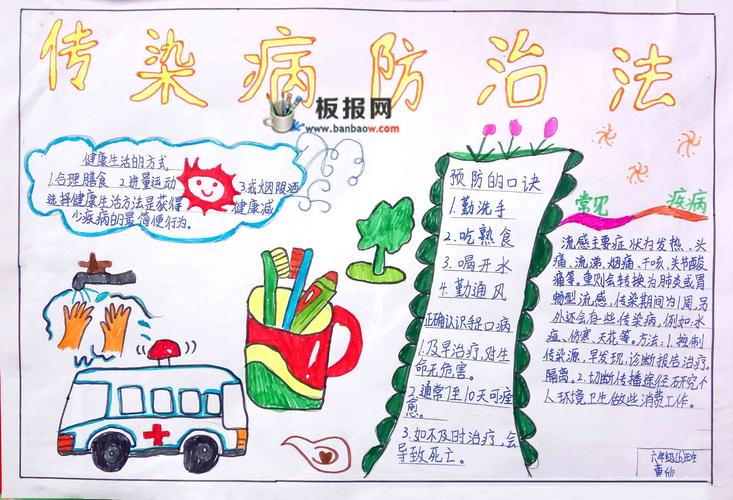 传染病防治法
板报网
www.banbaow.com
健康生活的方式
1.合理膳食 2.进量运动 3戒烟限酒
选择健康生活方法是获得健康减
少疾病的最简便行为。
预防的口诀
1.勤洗手
2.吃熟食
3.喝开水
4.勤通风
正确认识轻口病
1.及早治疗,对生
命无危害。
2.通常7至10天可痊
愈。
3.如不及时治疗,会
导致死亡。
常见 疾病
流感主要症状为发热、头
痛、流涕、烟痛、干咳、关节酸
痛等。重则会转换为肺炎或胃
肠型流感,传染期间为1周,另
外还会有些传染病,例如:水
痘、伤寒、天花等。方法:1.控制
传染源、早发现,诊断报告治疗,
隔离。2.切断传播途径研究个
人环境卫生做些消费工作。
六年级(6)班